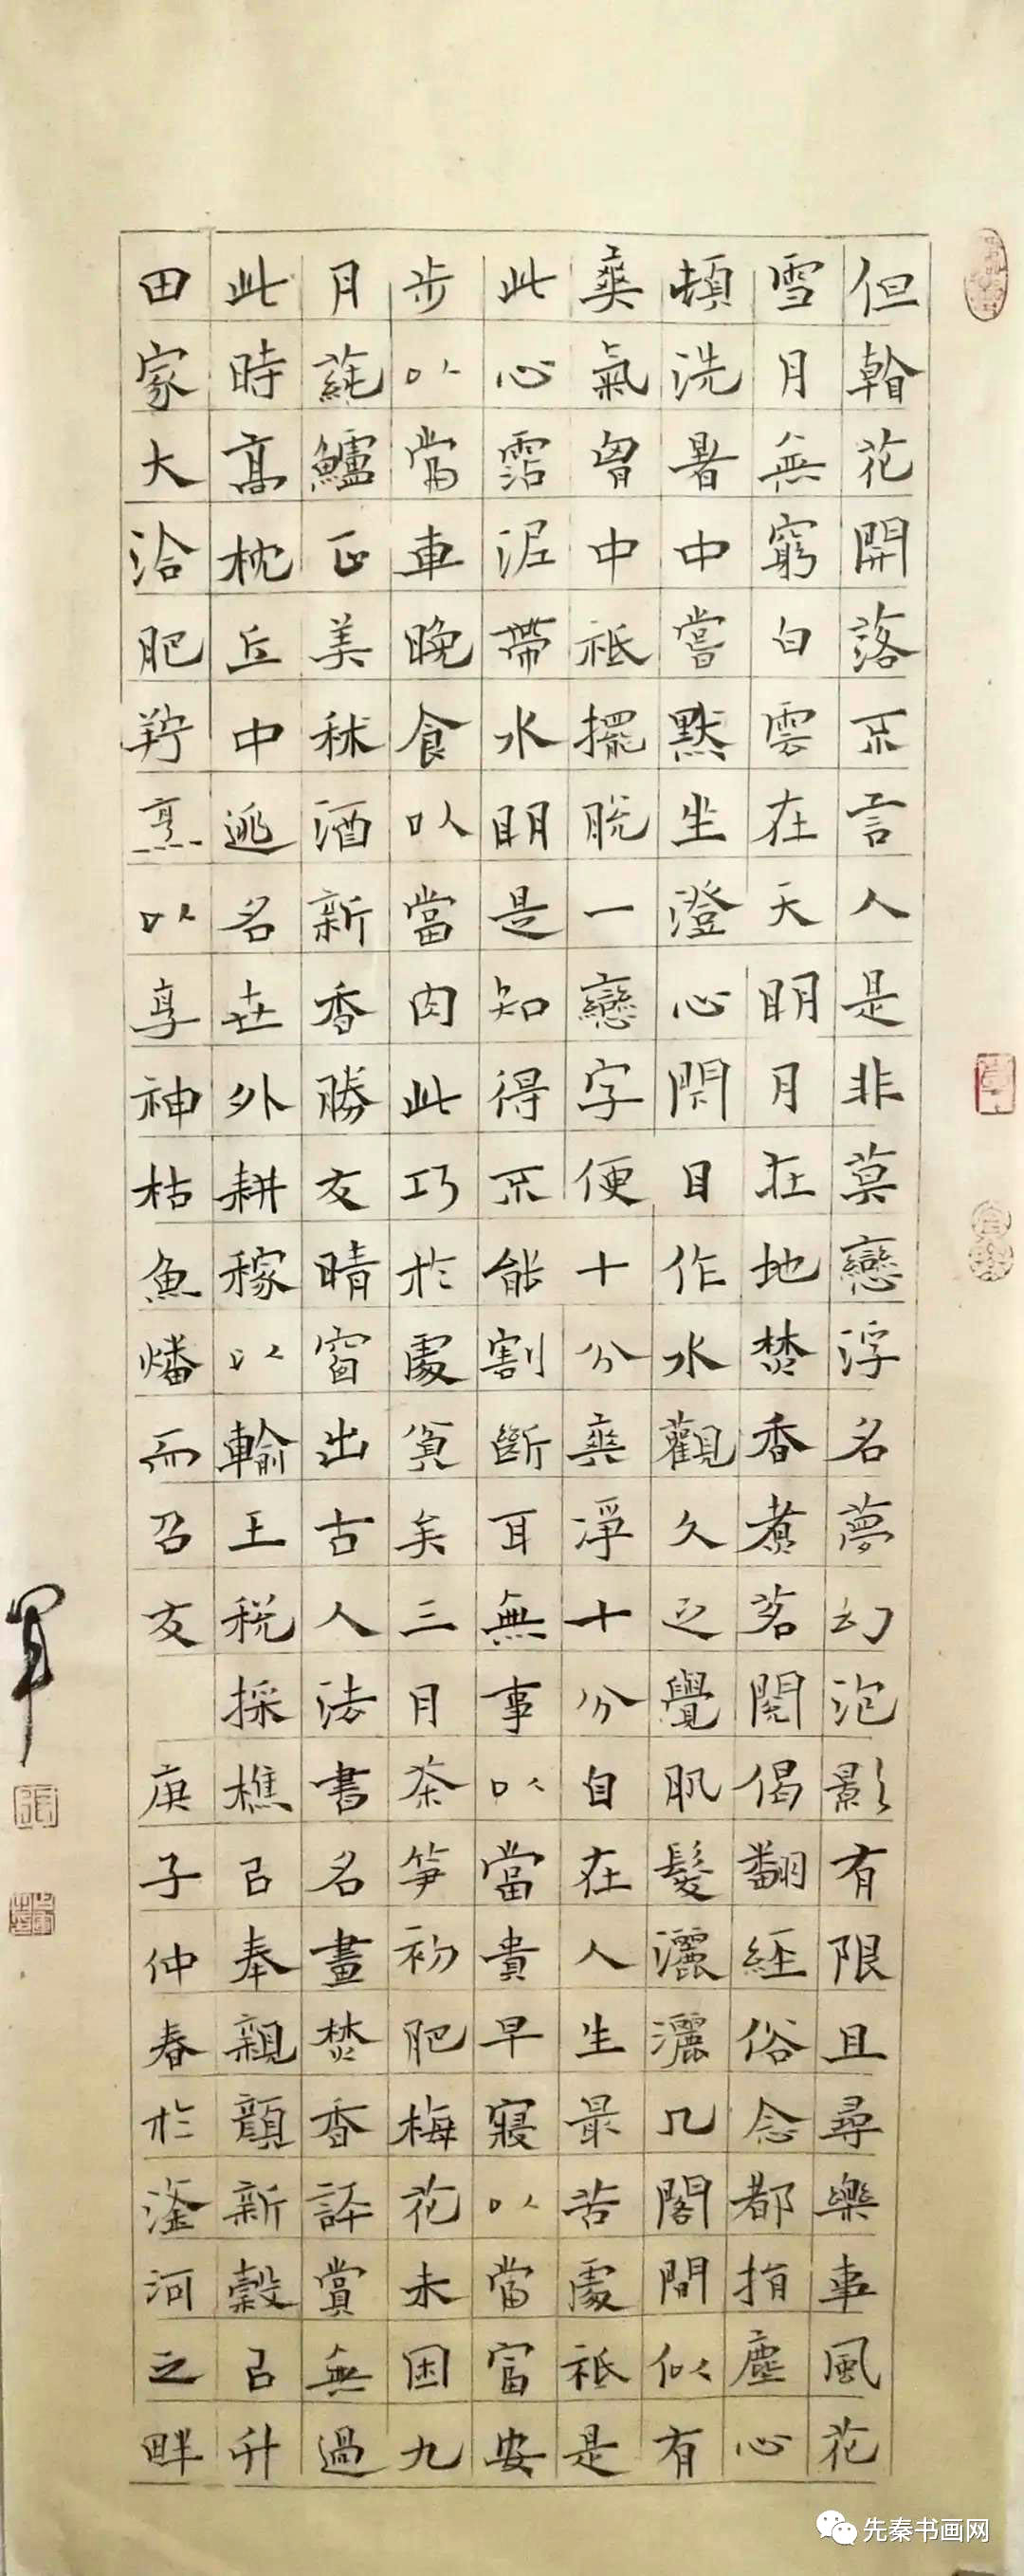 但看花開落不言人是非莫戀浮名夢幻泡影有限且尋樂事風花
雪月無窮白雲在天明月在地焚香煮茗閱偈翻經俗念都捐塵心
頓洗暑中嘗默坐澄心閉目作水觀久之覺肌髮灑灑几閣間似有
爽氣胷中祗擺脫一戀字便十分爽淨十分自在人生最苦處祗是
此心霑泥帶水明是知得不能割斷耳無事以當貴早寢以當富安
步以當車晚食以當肉此巧於處貧矣三月茶筍初肥梅花未困九
月蓴鱸正美秫酒新香勝友晴窗出古人法書名畫焚香評賞無過
此時高枕丘中逃名世外耕稼以輸王稅採樵㠯奉親顏新穀㠯升
田家大洽肥羜烹以享神枯魚燔而召友 庚子仲春於滏河之畔
軍
先秦书画网